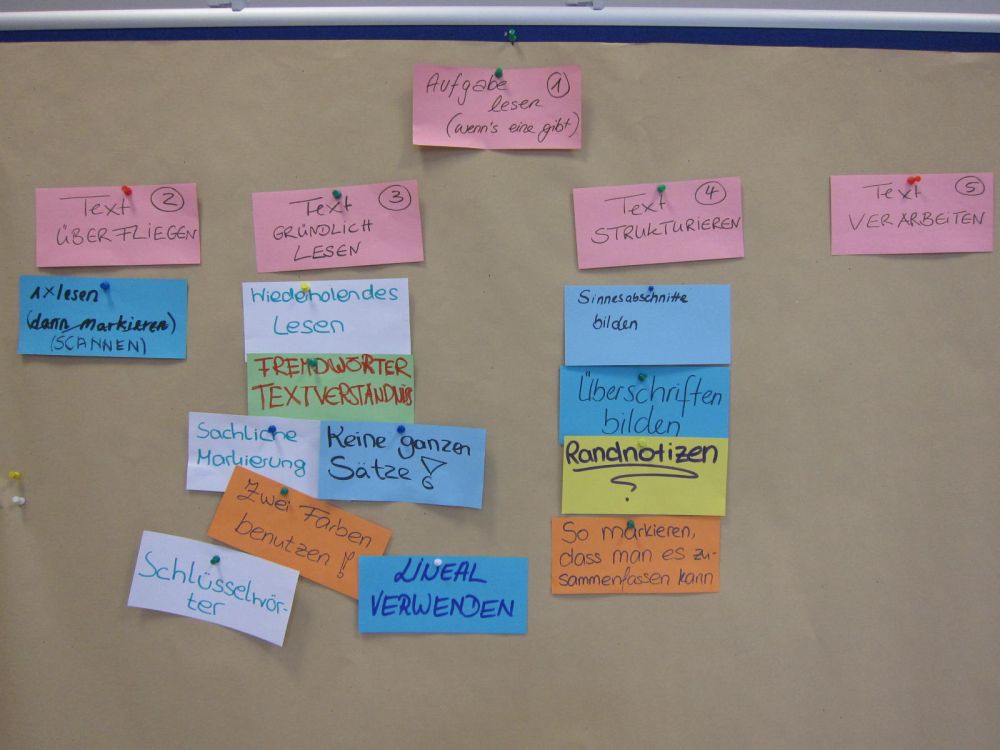 Aufgabe 1
lesen
(wenn's eine gibt)
Text 2
ÜBERFLIEGEN
1x lesen
(dann markieren)
(SCANNEN)
Text 3
GRÜNDLICH
LESEN
Wiederholendes
Lesen
FREMDWÖRTER
TEXTVERSTÄNDNIS
Sachliche
Markierung
Keine ganzen
Sätze!
Zwei Farben
benutzen!
Schlüsselwör-
ter
LINEAL
VERWENDEN
Text 4
STRUKTURIEREN
Sinnesabschnitte
bilden
Überschriften
bilden
Randnotizen
?
So markieren,
dass man es zu-
sammenfassen kann
Text 5
VERARBEITEN